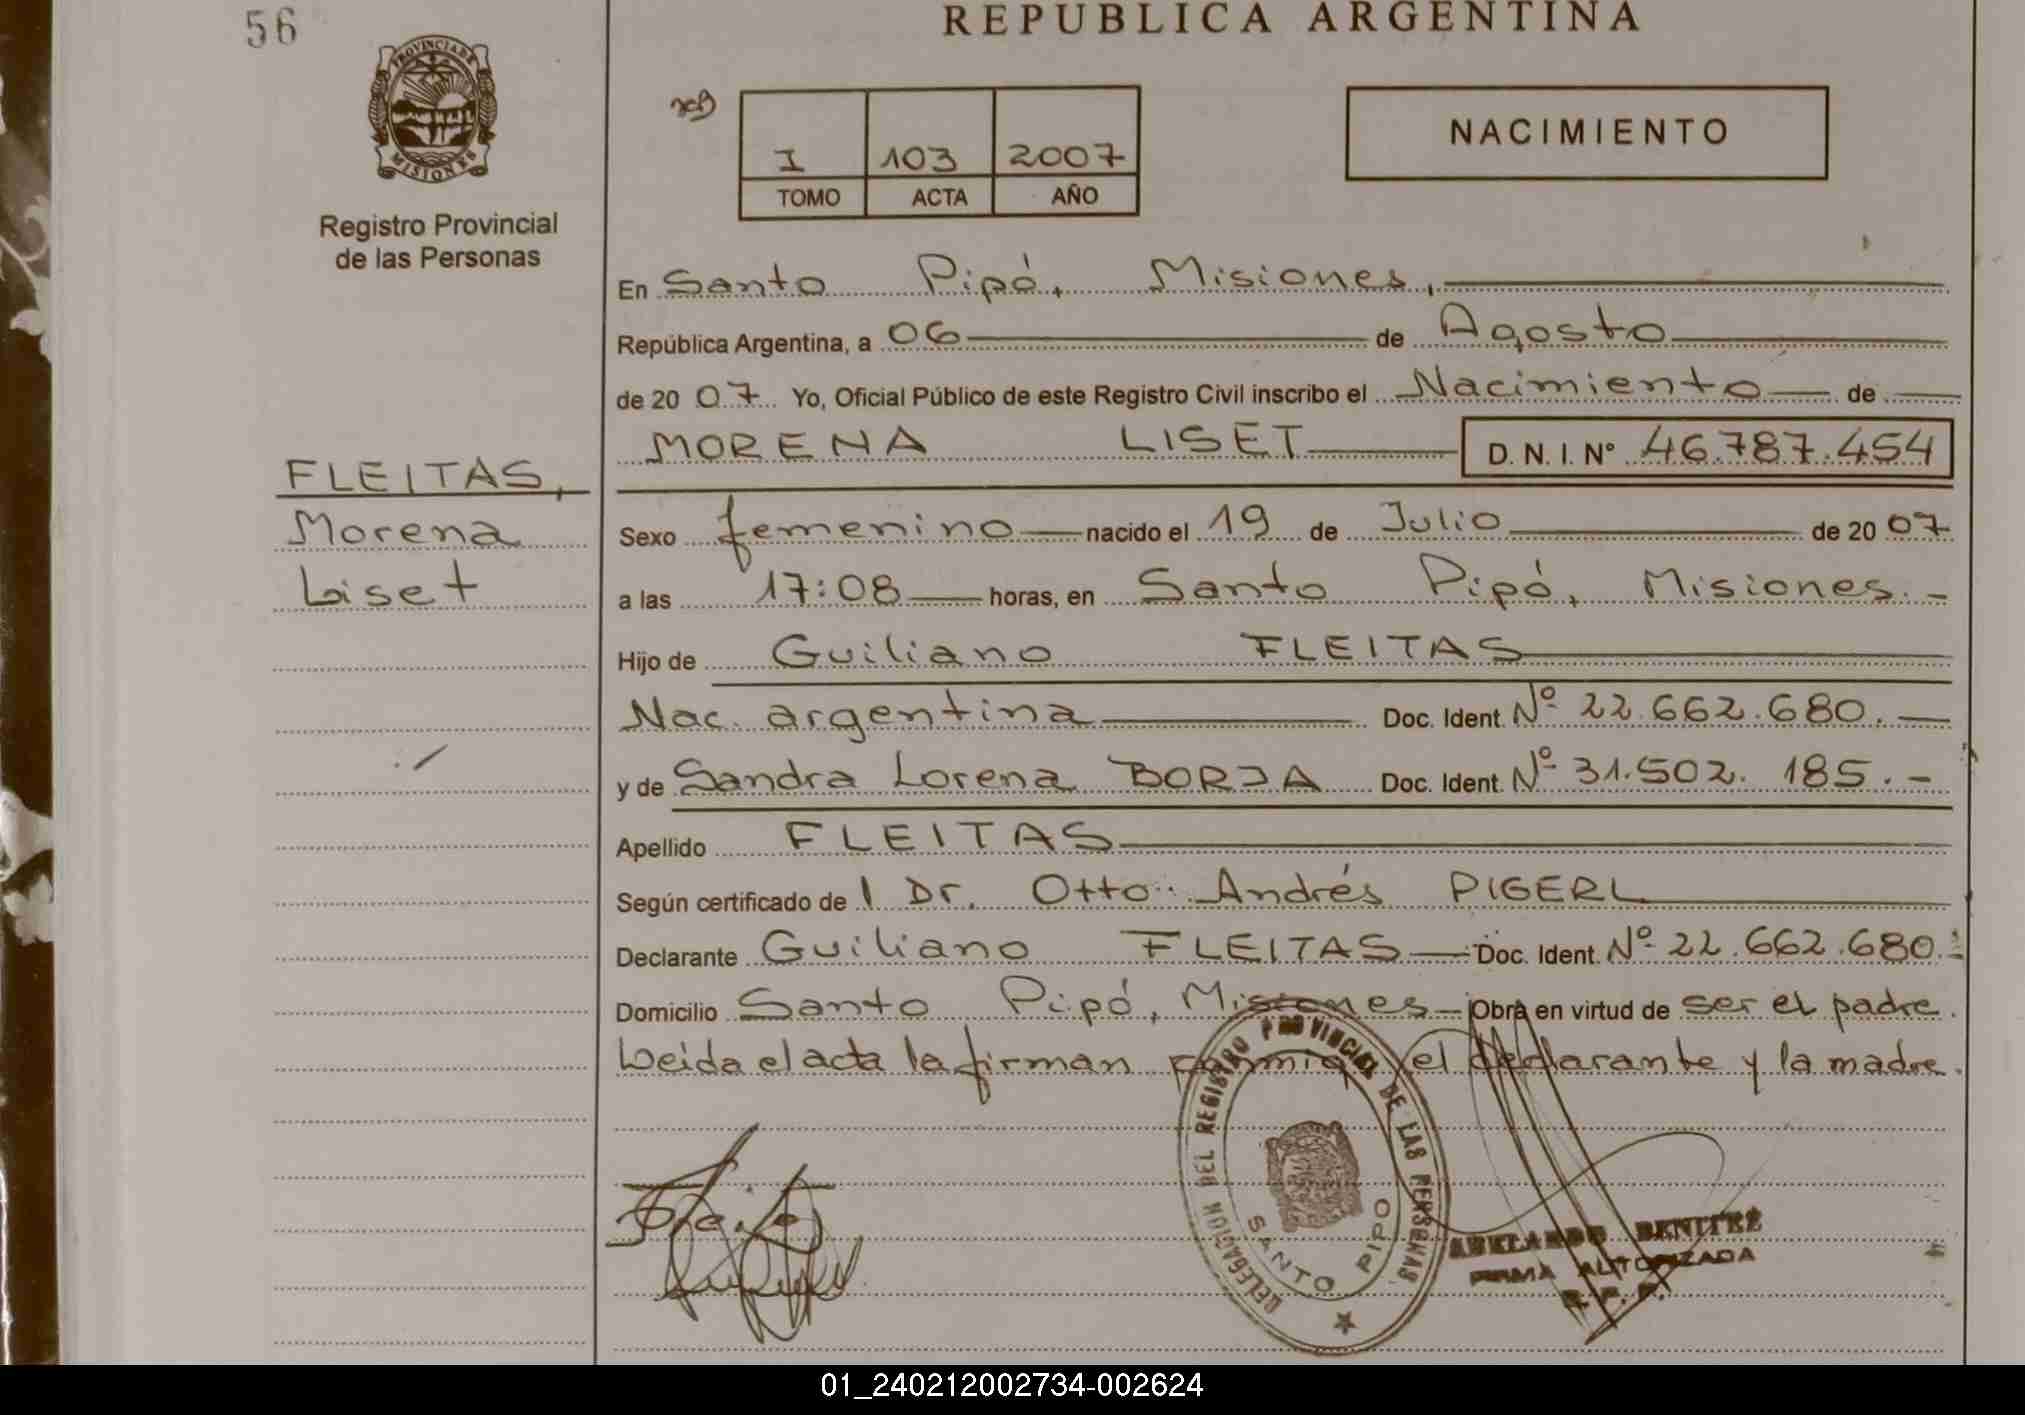 56
REPUBLICA ARGENTINA
PROVINCIA DE
MISIONES
Registro Provincial
de las Personas
I 103 2007
TOMO ACTA AÑO
NACIMIENTO
En Santo Pipó, Misiones,
República Argentina, a 06 de Agosto
de 20 07 Yo, Oficial Público de este Registro Civil inscribo el Nacimiento de
MORENA LISET D. N. I. Nº 46.787.454
FLEITAS,
Morena
Liset
Sexo femenino nacido el 19 de Julio de 20 07
a las 17:08 horas, en Santo Pipó, Misiones.-
Hijo de Guiliano FLEITAS
Nac. argentina Doc. Ident. Nº 22.662.680.-
y de Sandra Lorena BORJA Doc. Ident. Nº 31.502.185.-
Apellido FLEITAS
Según certificado de l Dr. Otto Andrés PIGERL
Declarante Guiliano FLEITAS Doc. Ident. Nº 22.662.680.-
Domicilio Santo Pipó, Misiones Obra en virtud de ser el padre.
Leida el acta la firman conmigo el declarante y la madre.
DELEGACION DEL REGISTRO PROVINCIAL DE LAS PERSONAS
SANTO PIPO
BENITEZ
FIRMA AUTORIZADA
01_240212002734-002624